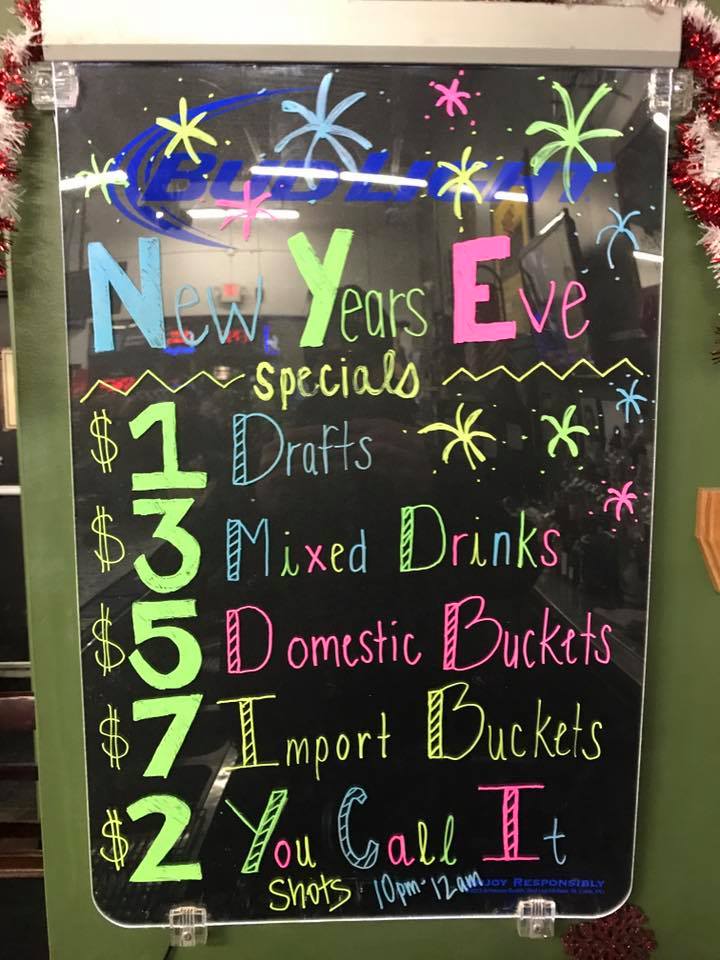 BUD LIGHT
New Years Eve
specials
$1 Drafts
$3 Mixed Drinks
$5 Domestic Buckets
$7 Import Buckets
$2 You Call It
Shots 10pm-12am
ENJOY RESPONSIBLY